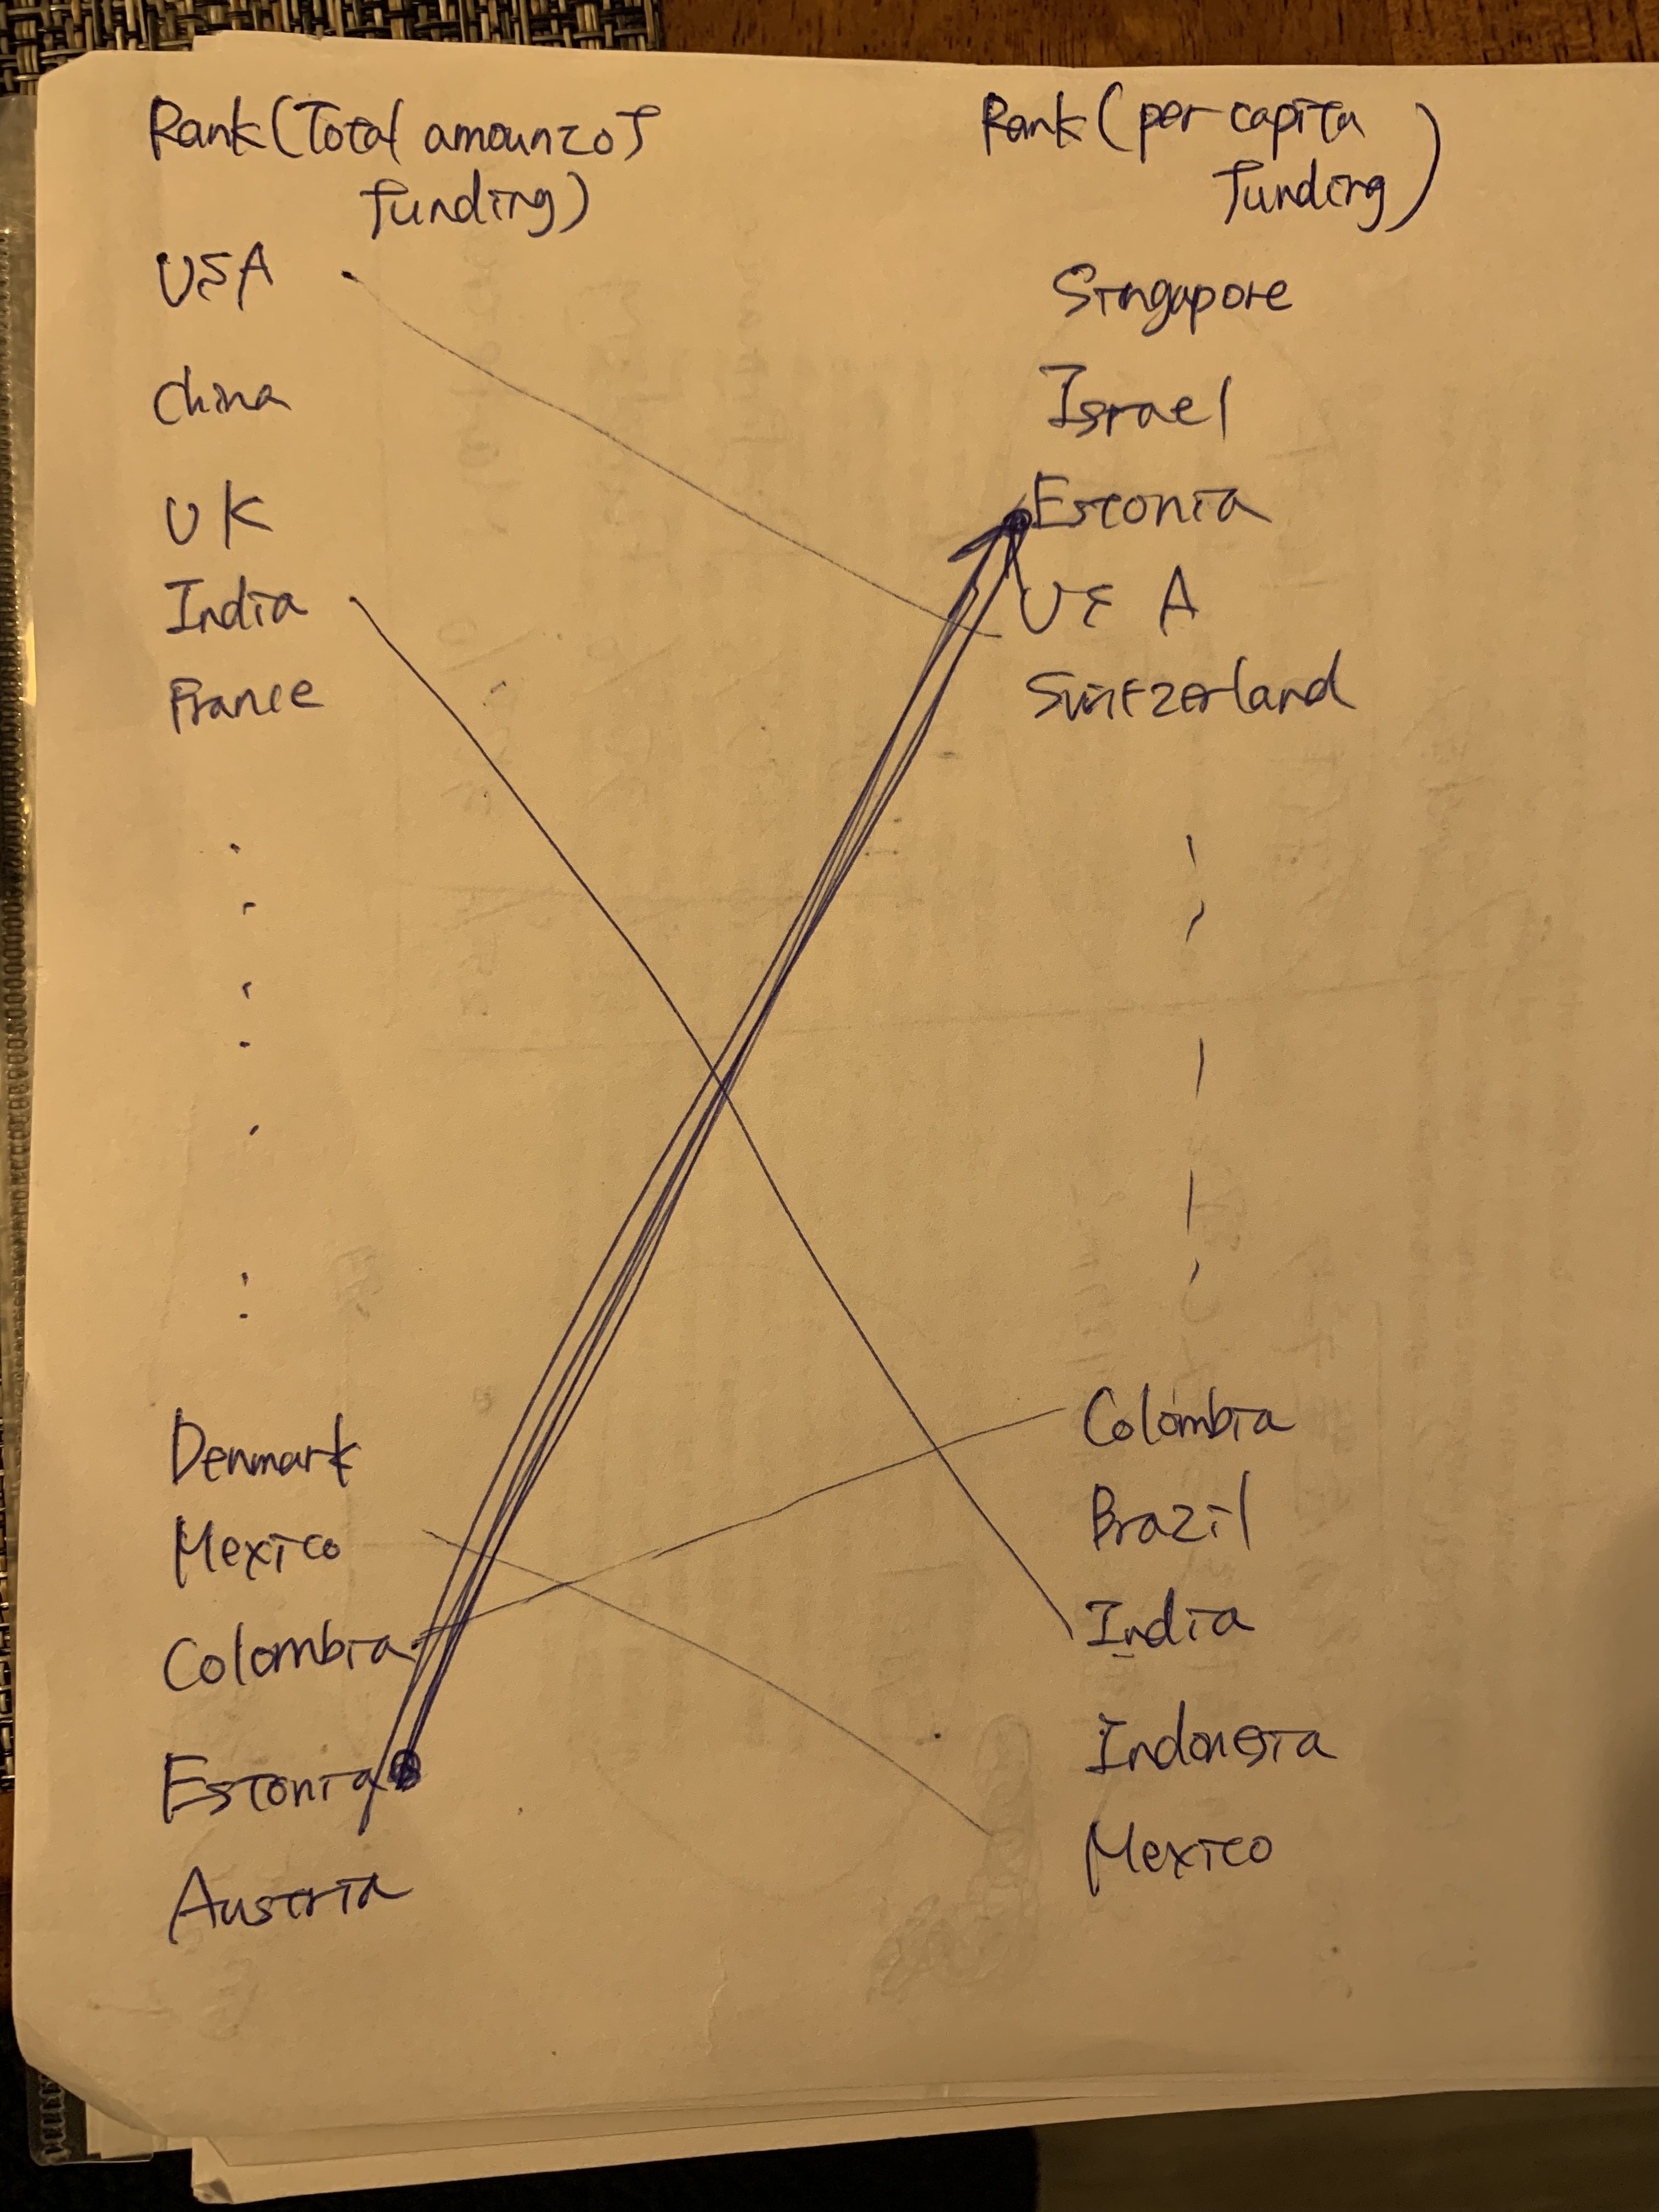 Rank (Total amount of
funding)
USA
China
UK
India
France
Denmark
Mexico
Colombia
Estonia
Austria
Rank (per capita
funding)
Singapore
Israel
Estonia
USA
Switzerland
Colombia
Brazil
India
Indonesia
Mexico